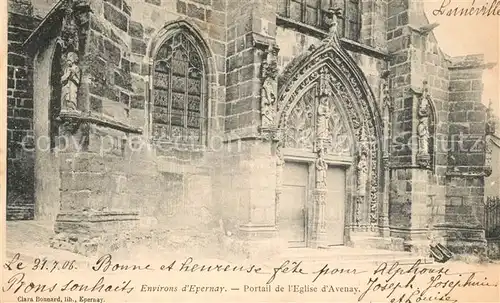 Lornéville
Le 31.7.06. Bonne et heureuse fête pour Alphonse
Bons souhaits Environs d'Epernay. — Portail de l'Eglise d'Avenay. Joseph, Joséphine
Clara Bonnard, lib., Epernay. et Louise